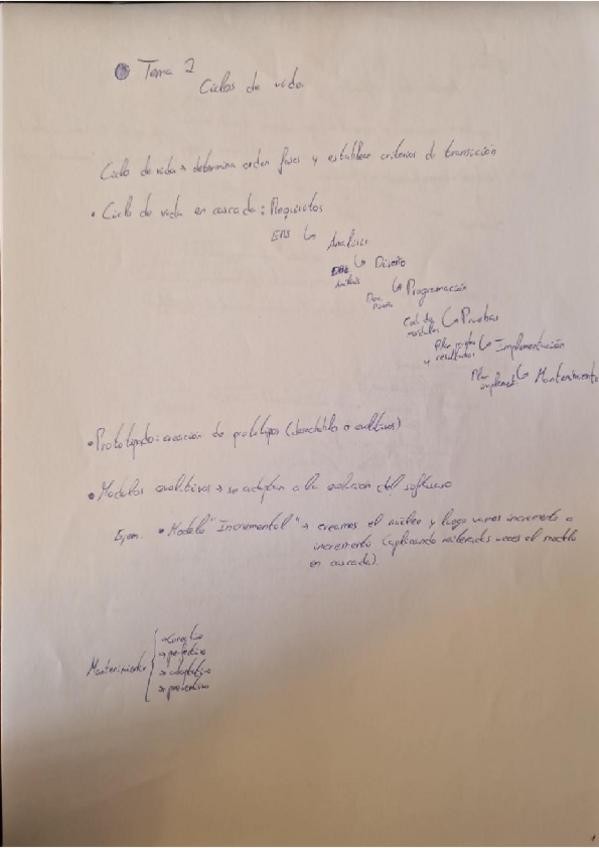 Tema 2
Ciclos de vida
Ciclo de vida → determina orden fases y establece criterios de transición
• Ciclo de vida en cascada: Requisitos
ERS ↳ Analisis
↳ Diseño
Análisis
Doc. ↳ Programación
Diseño
Cod. de ↳ Pruebas
modulos
Plan
y resultados ↳ Implementación
Plan ↳ Mantenimiento
implement.
• Prototipado: creación de prototipos (desechables o evolutivos)
• Modelos evolutivos → se adaptan a la evolución del software
Ejem. • Modelo "Incremental" → creamos el núcleo y luego vamos incremento a
incremento (aplicando reiteradas veces el modelo
en cascada).
→ correctivo
→ perfectivo
Mantenimiento
→ adaptativo
→ preventivo